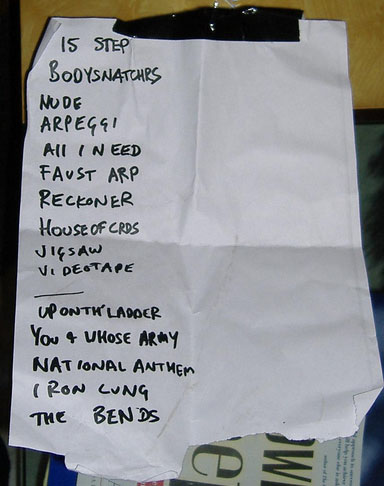 15 STEP
BODYSNATCHRS
NUDE
ARPEGGI
All I NEED
FAUST ARP
RECKONER
HOUSE OF CRDS
JIGSAW
VIDEOTAPE
UP ON TH' LADDER
YOU & WHOSE ARMY
NATIONAL ANTHEM
IRON LUNG
THE BENDS